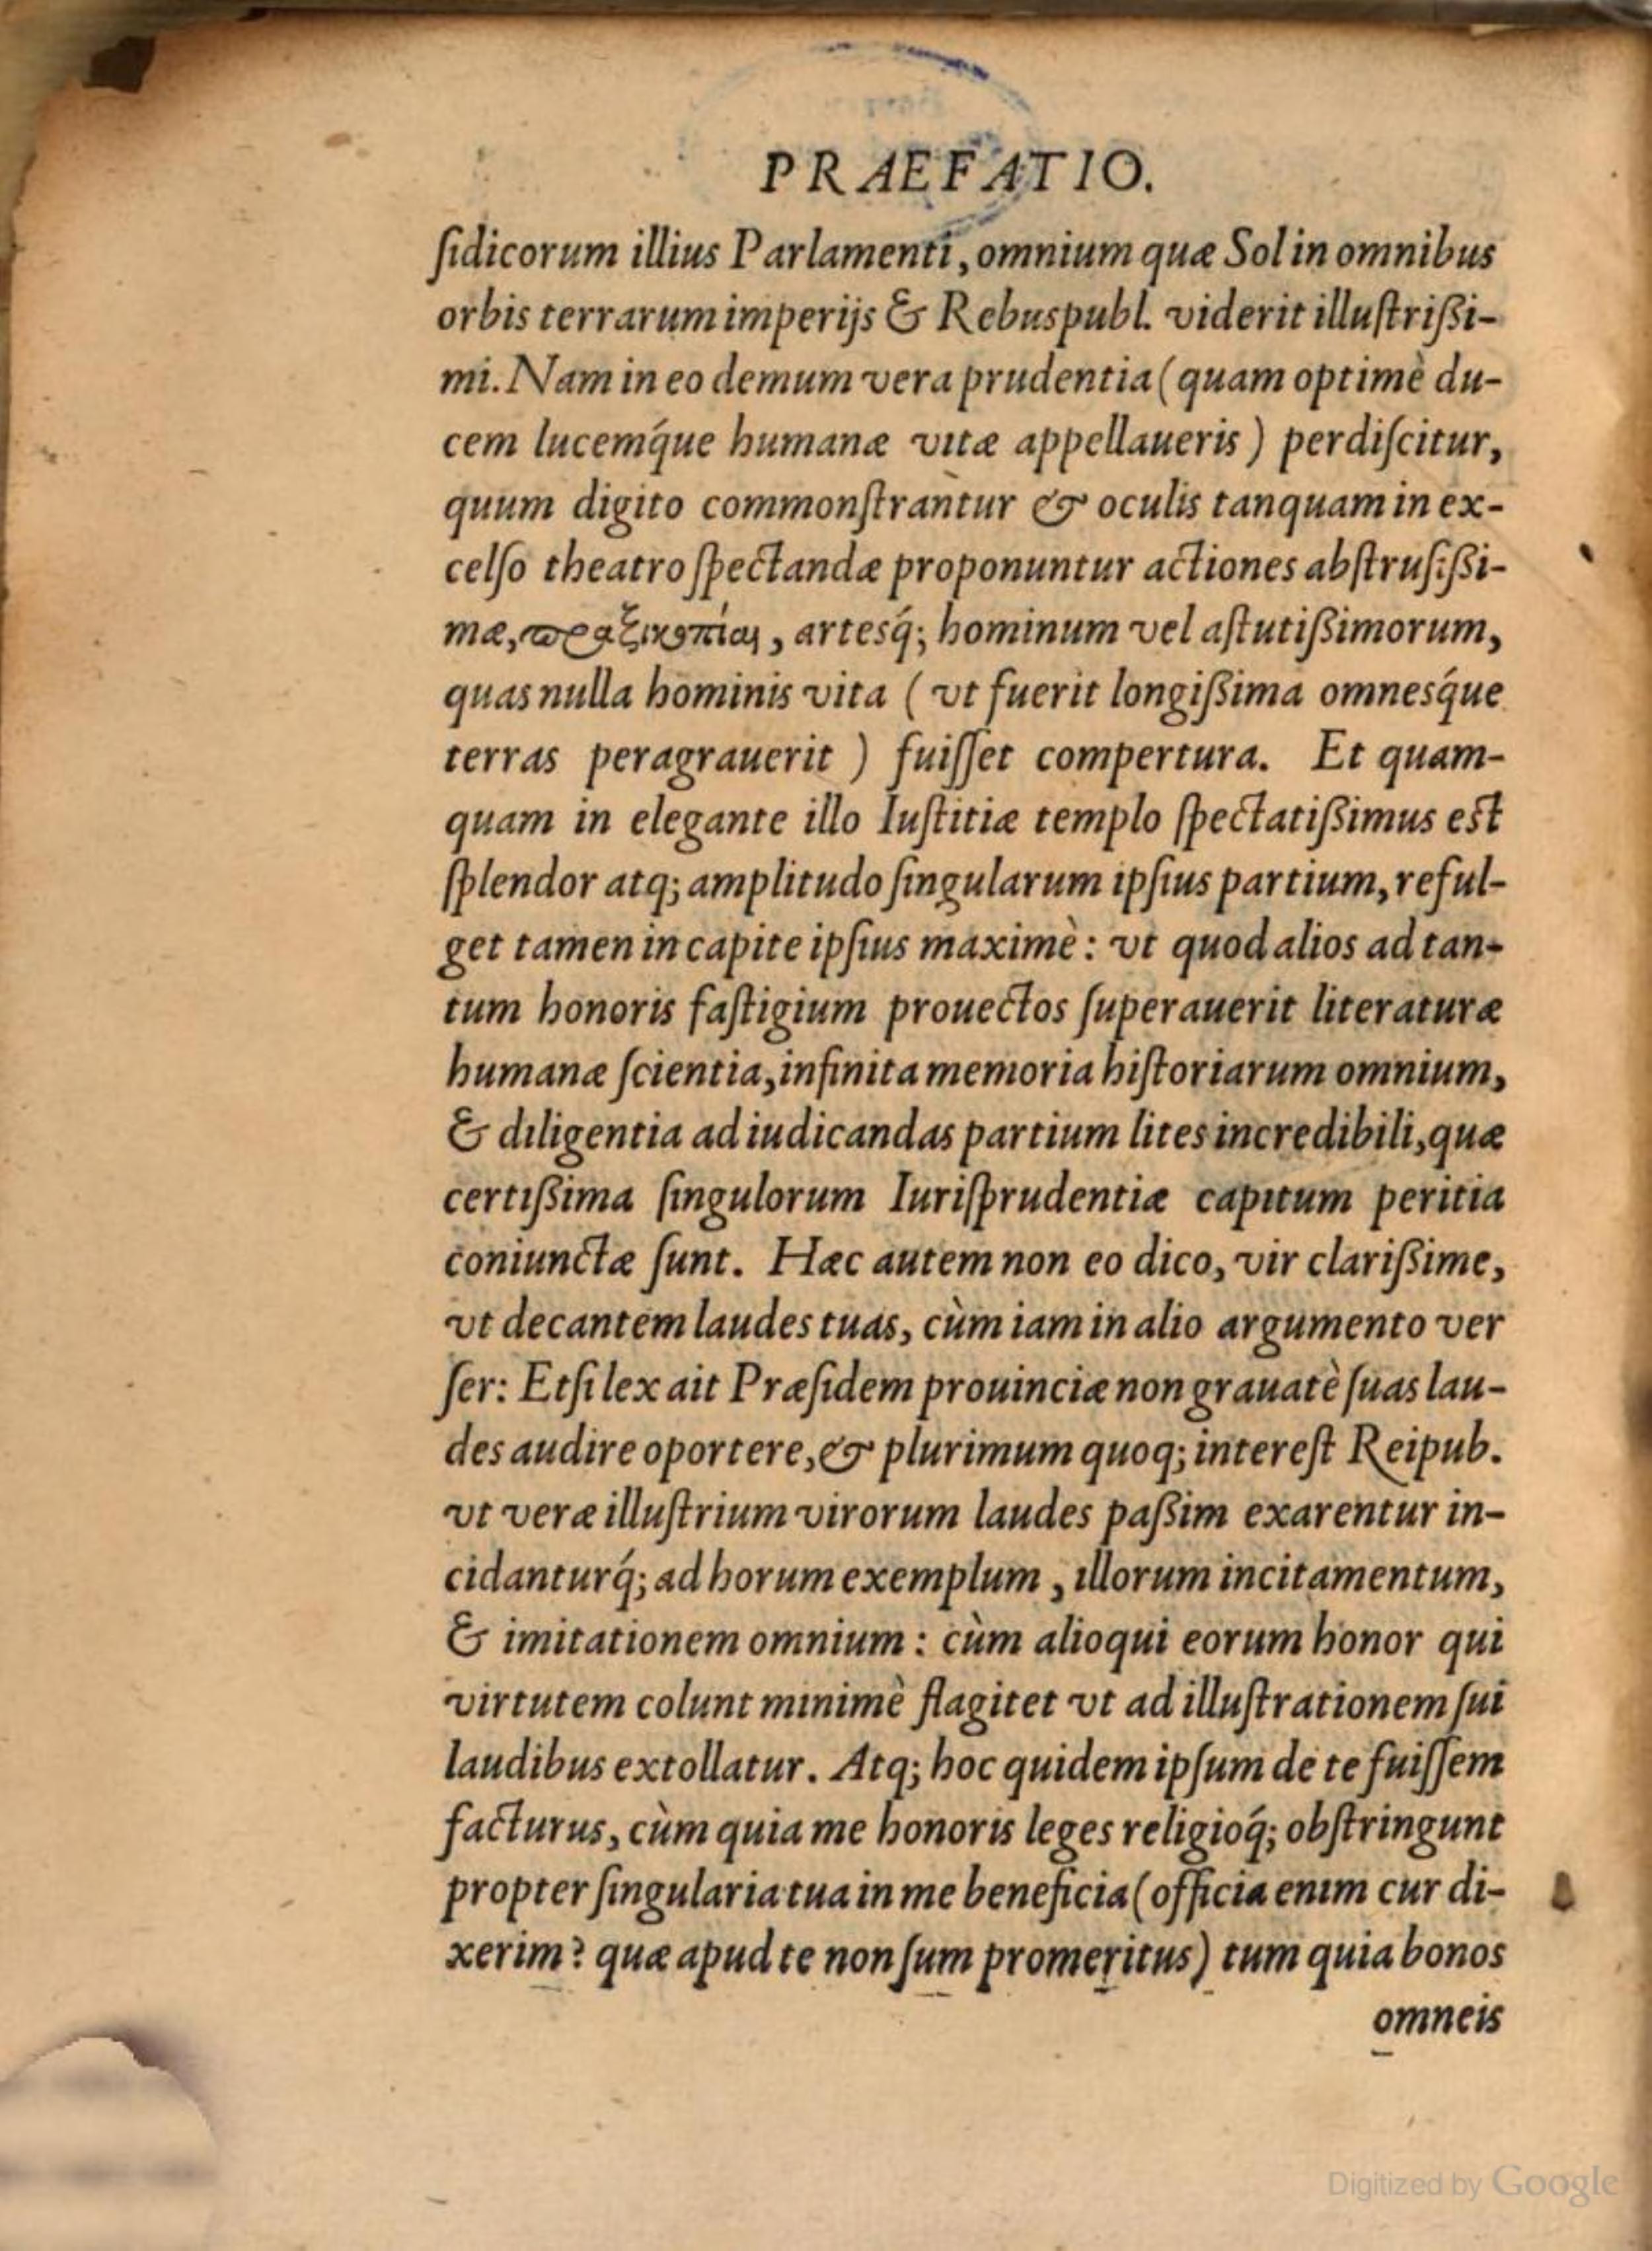 PRAEFATIO.
ſidicorum illius Parlamenti, omnium quæ Sol in omnibus
orbis terrarum imperijs & Rebuspubl. viderit illuſtriſsi-
mi. Nam in eo demum vera prudentia (quam optimè du-
cem lucemq́ue humanæ vitæ appellaueris) perdiſcitur,
quum digito commonſtrantur & oculis tanquam in ex-
celſo theatro ſpectandæ proponuntur actiones abſtruſiſsi-
mæ, πραξικοπίαι, artesq́; hominum vel aſtutiſsimorum,
quas nulla hominis vita (vt fuerit longiſsima omnesq́ue
terras peragrauerit) fuiſſet compertura. Et quam-
quam in elegante illo Iuſtitiæ templo ſpectatiſsimus eſt
ſplendor atq; amplitudo ſingularum ipſius partium, reful-
get tamen in capite ipſius maximè: vt quod alios ad tan-
tum honoris faſtigium prouectos ſuperauerit literaturæ
humanæ ſcientia, infinita memoria hiſtoriarum omnium,
& diligentia ad iudicandas partium lites incredibili, quæ
certiſsima ſingulorum Iuriſprudentiæ capitum peritia
coniunctæ ſunt. Hæc autem non eo dico, vir clariſsime,
vt decantem laudes tuas, cùm iam in alio argumento ver
ſer: Etſi lex ait Præſidem prouinciæ non grauatè ſuas lau-
des audire oportere, & plurimum quoq; intereſt Reipub.
vt veræ illuſtrium virorum laudes paſsim exarentur in-
cidanturq́; ad horum exemplum, illorum incitamentum,
& imitationem omnium: cùm alioqui eorum honor qui
virtutem colunt minimè flagitet vt ad illuſtrationem ſui
laudibus extollatur. Atq; hoc quidem ipſum de te fuiſſem
facturus, cùm quia me honoris leges religioq́; obſtringunt
propter ſingularia tua in me beneficia (officia enim cur di-
xerim? quæ apud te non ſum promeritus) tum quia bonos
omneis
Digitized by Google